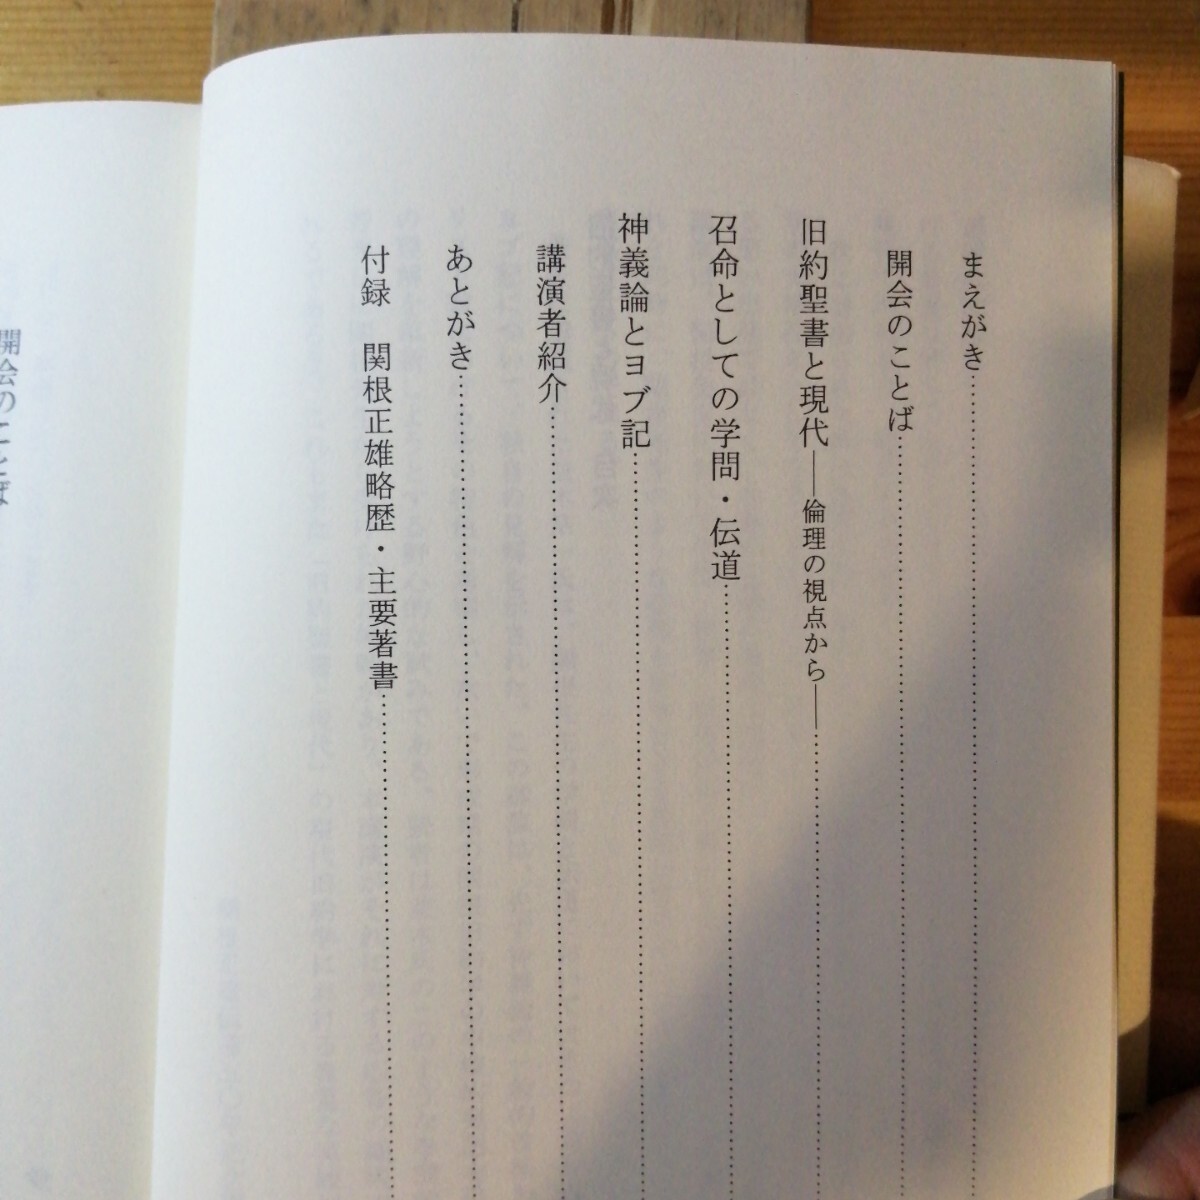 まえがき
開会のことば
旧約聖書と現代――倫理の視点から――
召命としての学問・伝道
神義論とヨブ記
講演者紹介
あとがき
付録　関根正雄略歴・主要著書
開会のことば